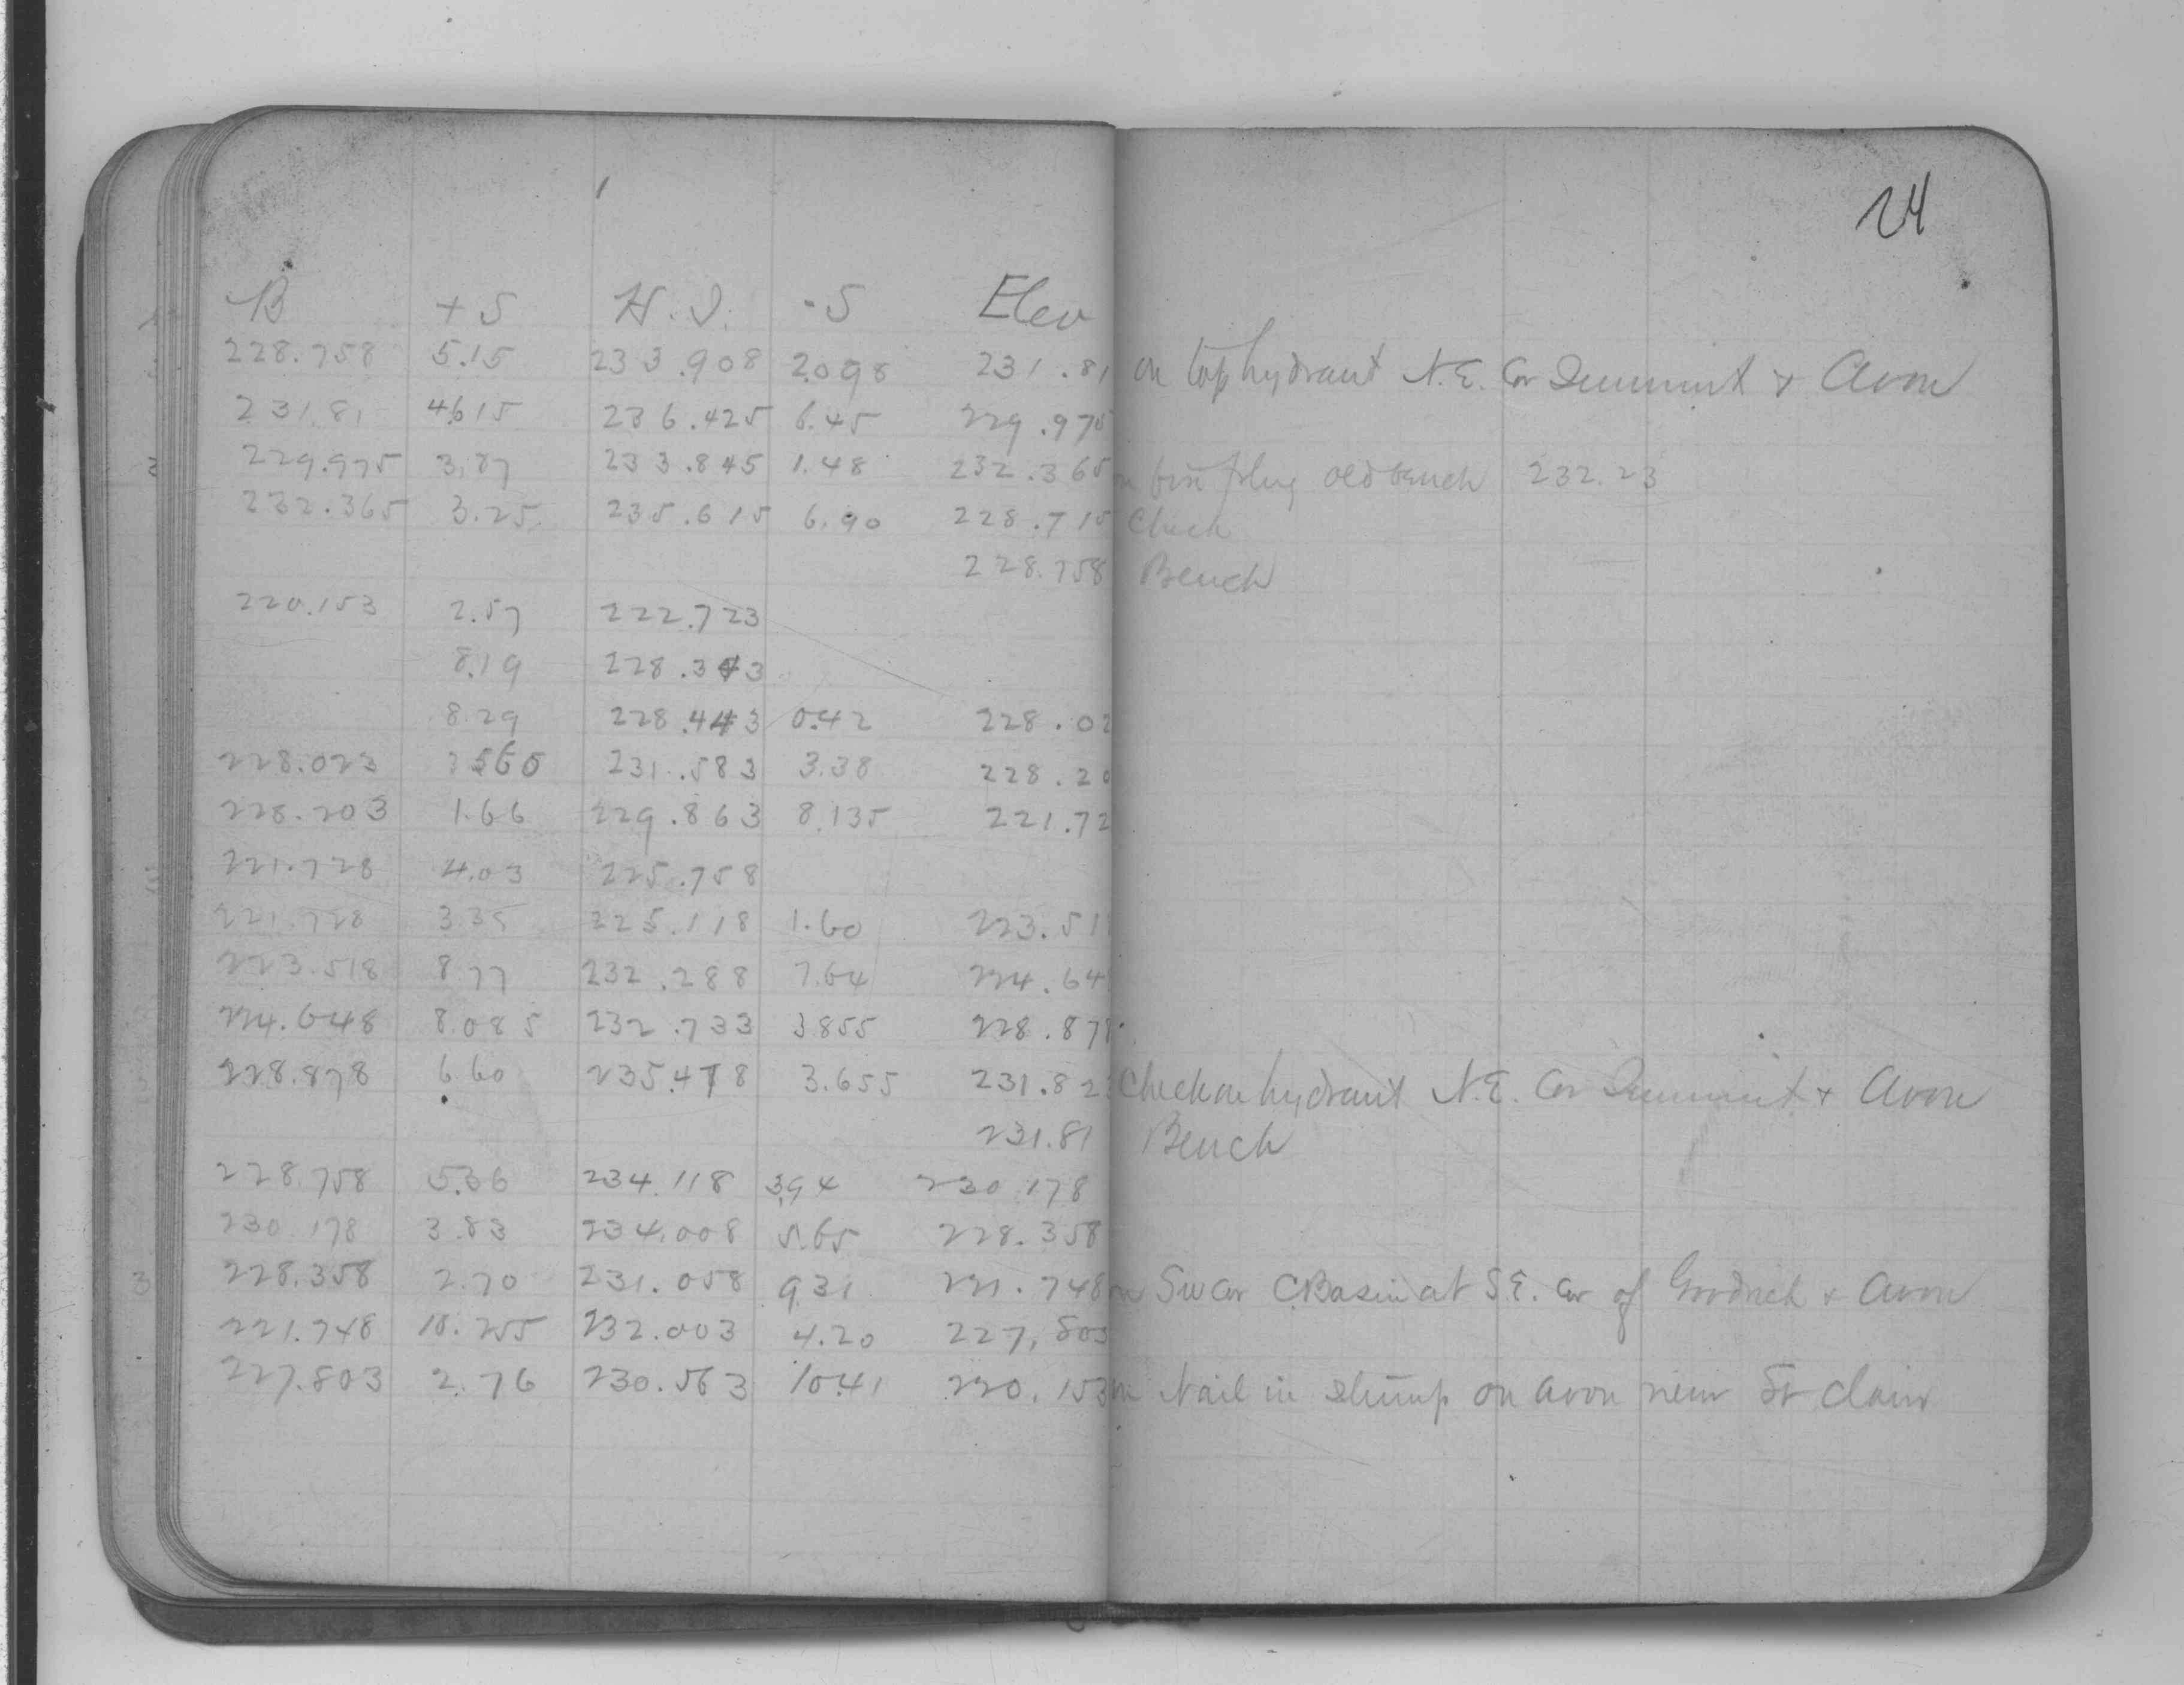 24
B + S H.I. - S Elev
228.758 5.15 233.908 2.098 231.81 on top hydrant N.E. Cor Summit + Avon
231.81 4.615 236.425 6.45 229.975
229.975 3.87 233.845 1.48 232.365 on fire plug old bench 232.23
232.365 3.25 235.615 6.90 228.715 Check
228.758 Bench
220.153 2.57 222.723
8.19 228.343
8.29 228.443 0.42 228.02
228.023 3560 231.583 3.38 228.20
228.203 1.66 229.863 8.135 221.72
221.728 4.03 225.758
221.728 3.35 225.118 1.60 223.51
223.518 8.77 232.288 7.64 224.64
224.648 8.085 232.733 3855 228.878
228.878 6.60 235.478 3.655 231.823 Check on hydrant N.E. Cor Summit + Avon
231.81 Bench
228.758 5.36 234.118 3.94 230.178
230.178 3.83 234.008 5.65 228.358
228.358 2.70 231.058 931 221.748 on SW Cor C Basin at S.E. Cor of Goodrich + Avon
221.748 10.255 232.003 4.20 227.803
227.803 2.76 230.563 10.41 220.153 on Nail in stump on Avon near St Clair